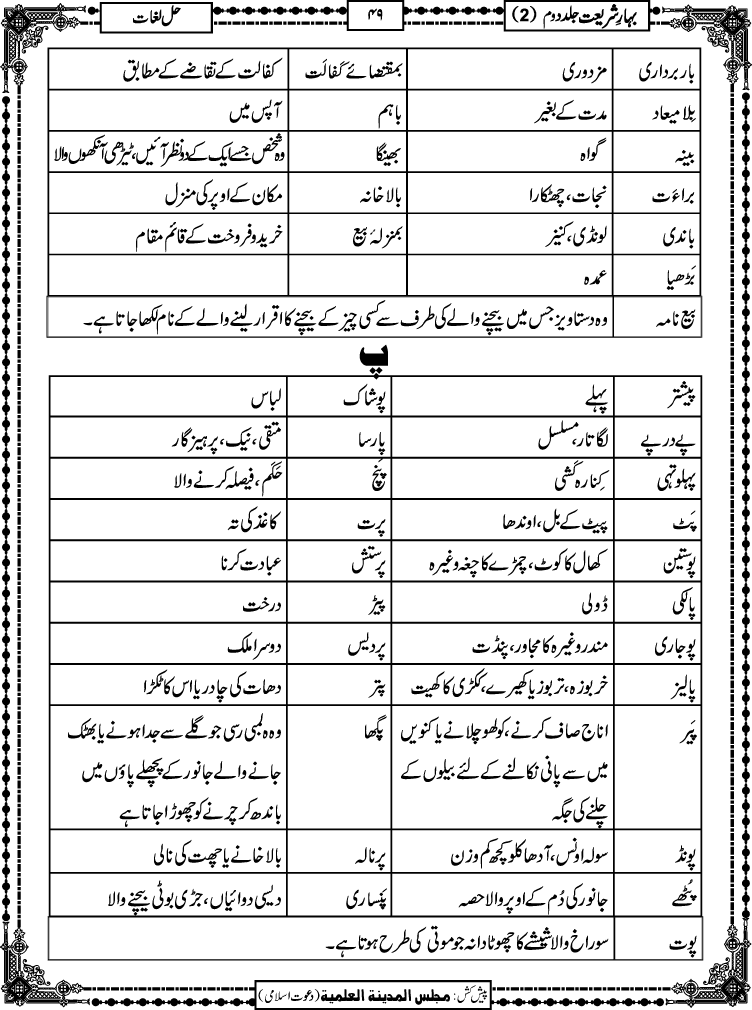 بہارِ شریعت جلد دوم (2)
۴۹
حل لغات
باربرداری مزدوری بمقتضائے کفالَت کفالت کے تقاضے کے مطابق
بِلا میعاد مدت کے بغیر باہم آپس میں
بینہ گواہ بھینگا وہ شخص جسے ایک کے دو نظر آئیں، ٹیڑھی آنکھوں والا
براءَت نجات، چھٹکارا بالا خانہ مکان کے اوپر کی منزل
باندی لونڈی، کنیز بمنزلۂ بیع خرید و فروخت کے قائم مقام
بَڑھیا عمدہ
بیع نامہ وہ دستاویز جس میں بیچنے والے کی طرف سے کسی چیز کے بیچنے کا اقرار لینے والے کے نام لکھا جاتا ہے۔
پ
پیشتر پہلے پوشاک لباس
پے درپے لگاتار، مسلسل پارسا متقی، نیک، پرہیزگار
پہلوتہی کِنارہ کَشی پَنچ حَکَم، فیصلہ کرنے والا
پَٹ پیٹ کے بل، اوندھا پرت کاغذ کی تہ
پوستین کھال کا کوٹ، چمڑے کا چغہ وغیرہ پرستش عبادت کرنا
پالکی ڈولی پیڑ درخت
پوجاری مندر وغیرہ کا مجاور، پنڈت پردیس دوسرا ملک
پالیز خربوزہ، تربوز یا کھیرے، ککڑی کا کھیت پتر دھات کی چادر یا اس کا ٹکڑا
پَیر اناج صاف کرنے، کولھو چلانے یا کنویں پگھا وہ لمبی رسی جو گلے سے جدا ہونے یا بھٹک
میں سے پانی نکالنے کے لئے بیلوں کے جانے والے جانور کے پچھلے پاؤں میں
چلنے کی جگہ باندھ کر چرنے کو چھوڑا جاتا ہے
پونڈ سولہ اونس، آدھا کلو کچھ کم وزن پرنالہ بالا خانے یا چھت کی نالی
پُٹھے جانور کی دُم کے اوپر والا حصہ پَنساری دیسی دوائیاں، جڑی بوٹی بیچنے والا
پوت سوراخ والا شیشے کا چھوٹا دانہ جو موتی کی طرح ہوتا ہے۔
پیش کش: مجلس المدینۃ العلمیۃ (دعوت اسلامی)